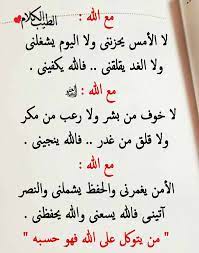 الطيب الكلام
مع الله :
لا الأمس يحزنني ولا اليوم يشغلني
ولا الغد يقلقني .. فالله يكفيني .
مع الله :
لا خوف من بشر ولا رعب من مكر
ولا قلق من غدر .. فالله ينجيني .
مع الله :
الأمن يغمرني والحفظ يشملني والنصر
آتيني فالله يسعني والله يحفظني .
" من يتوكل على الله فهو حسبه "